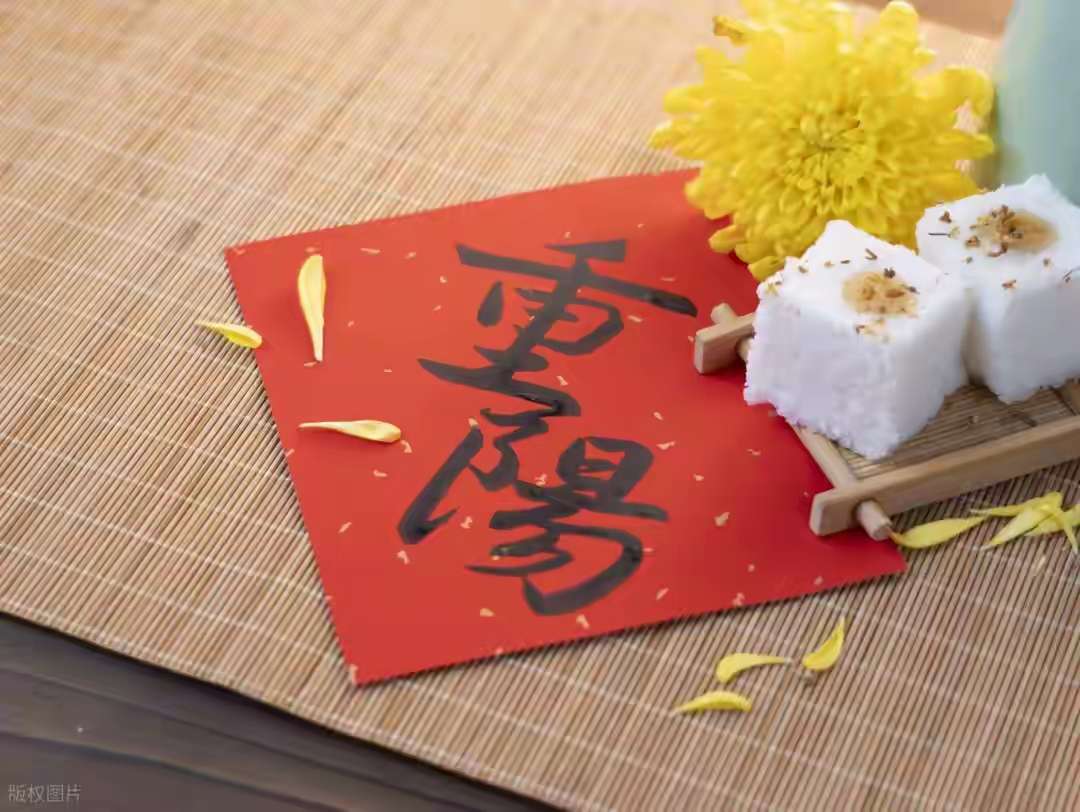 重陽
版权图片